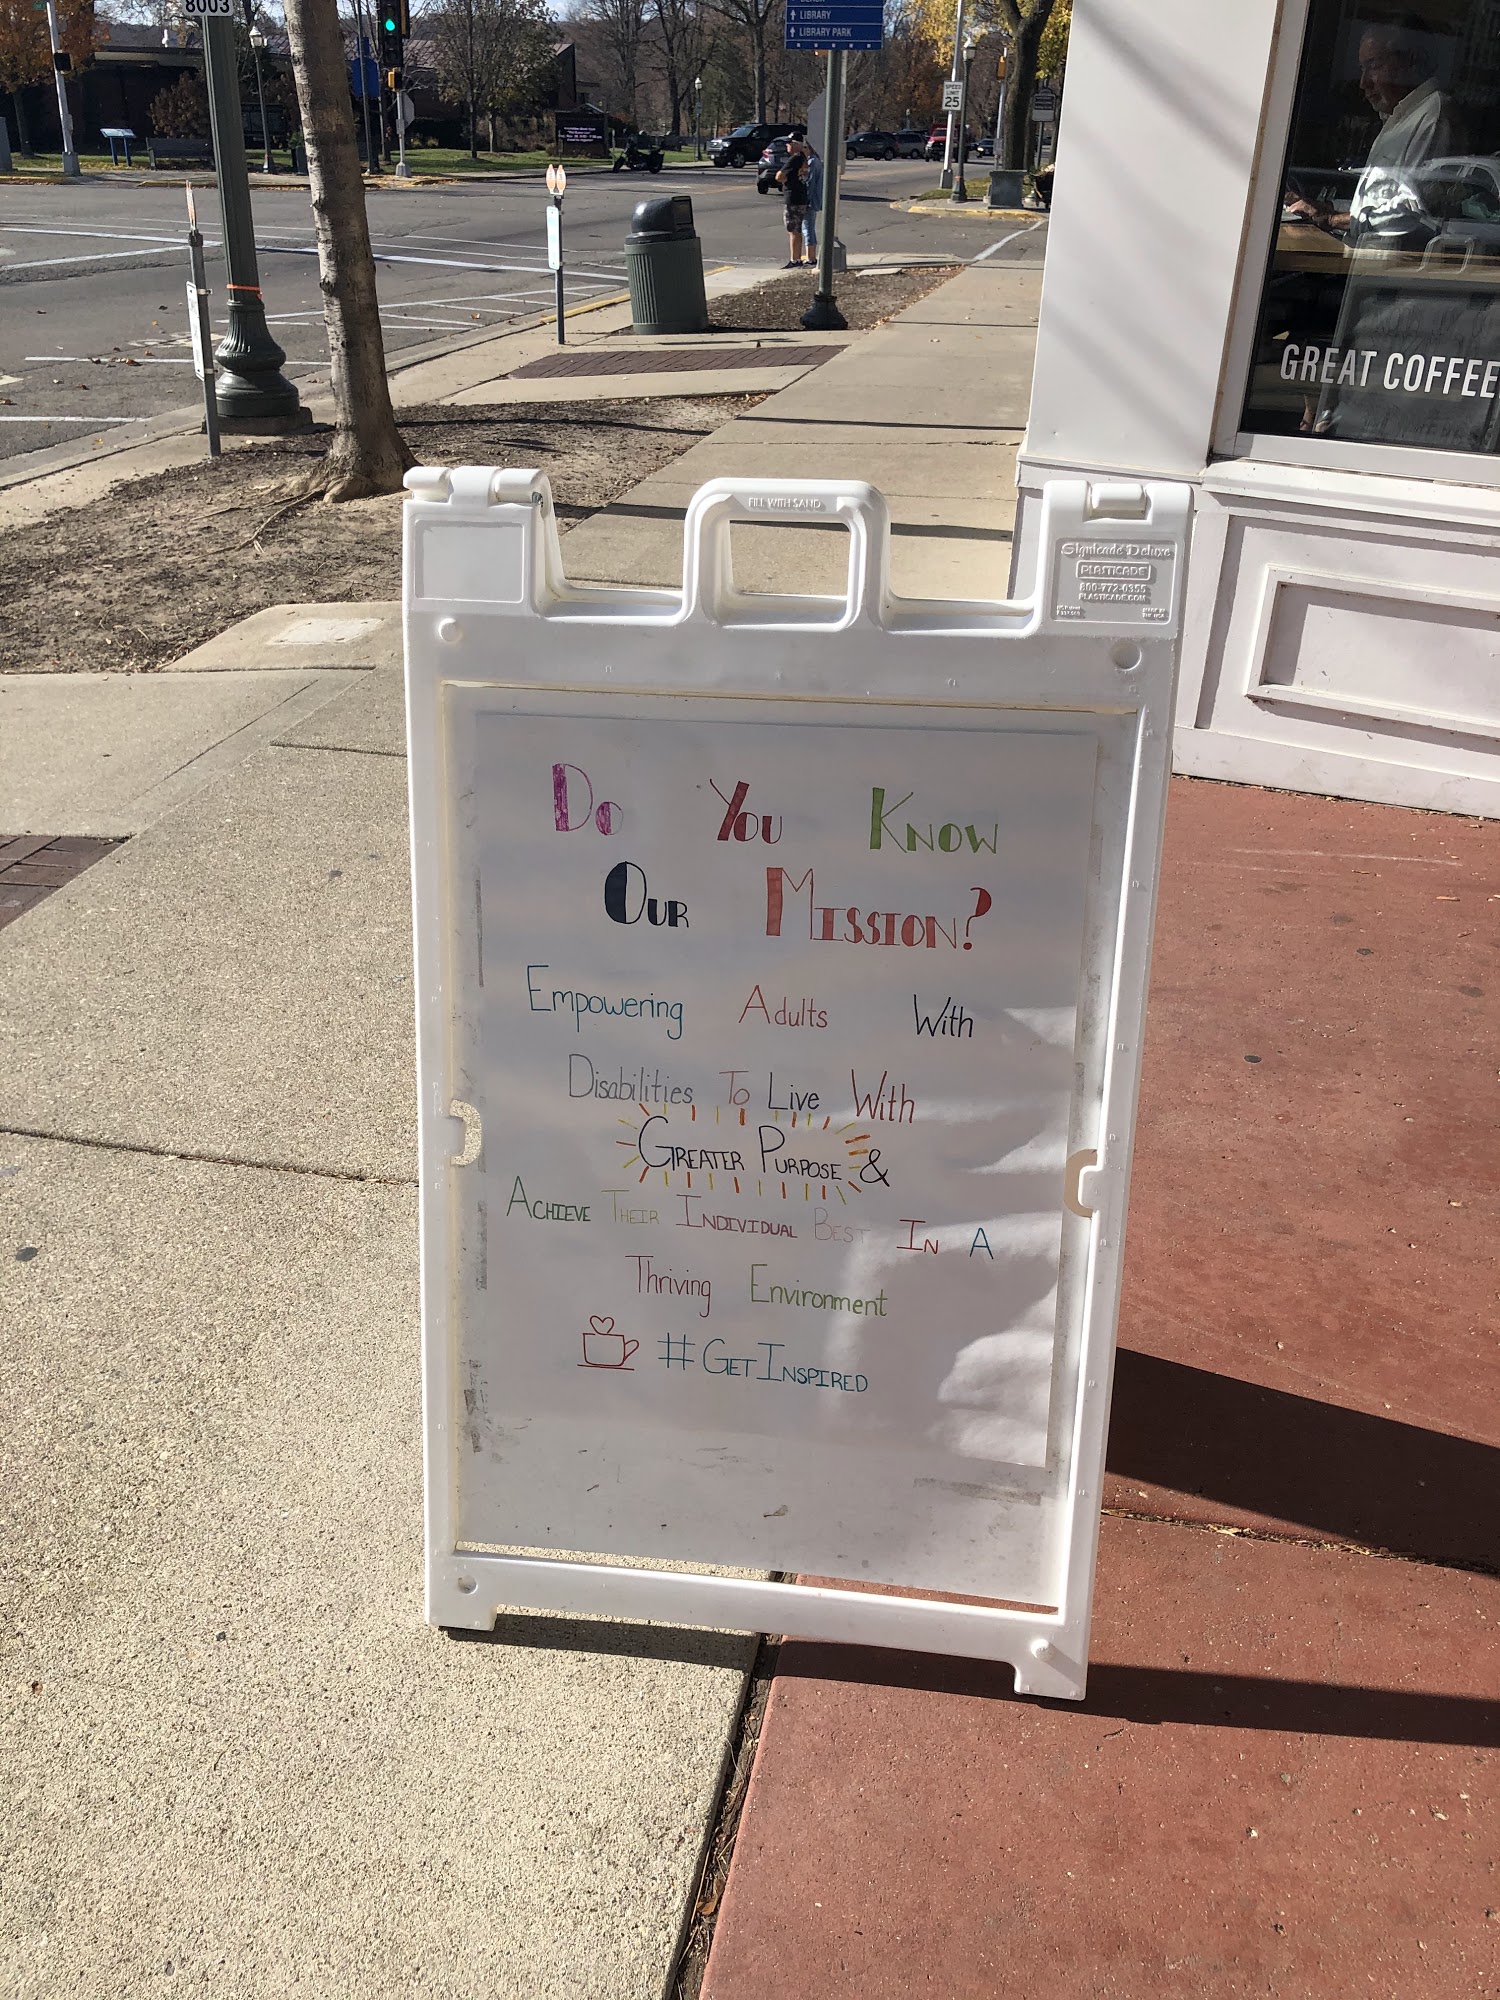 8003
LIBRARY
LIBRARY PARK
SPEED
LIMIT
25
GREAT COFFEE
FILL WITH SAND
Signicade Deluxe
PLASTICADE
800-772-0355
PLASTICADE.COM
MADE IN
THE USA
Do You Know
Our Mission?
Empowering Adults With
Disabilities To Live With
Greater Purpose &
Achieve Their Individual Best In A
Thriving Environment
#GetInspired